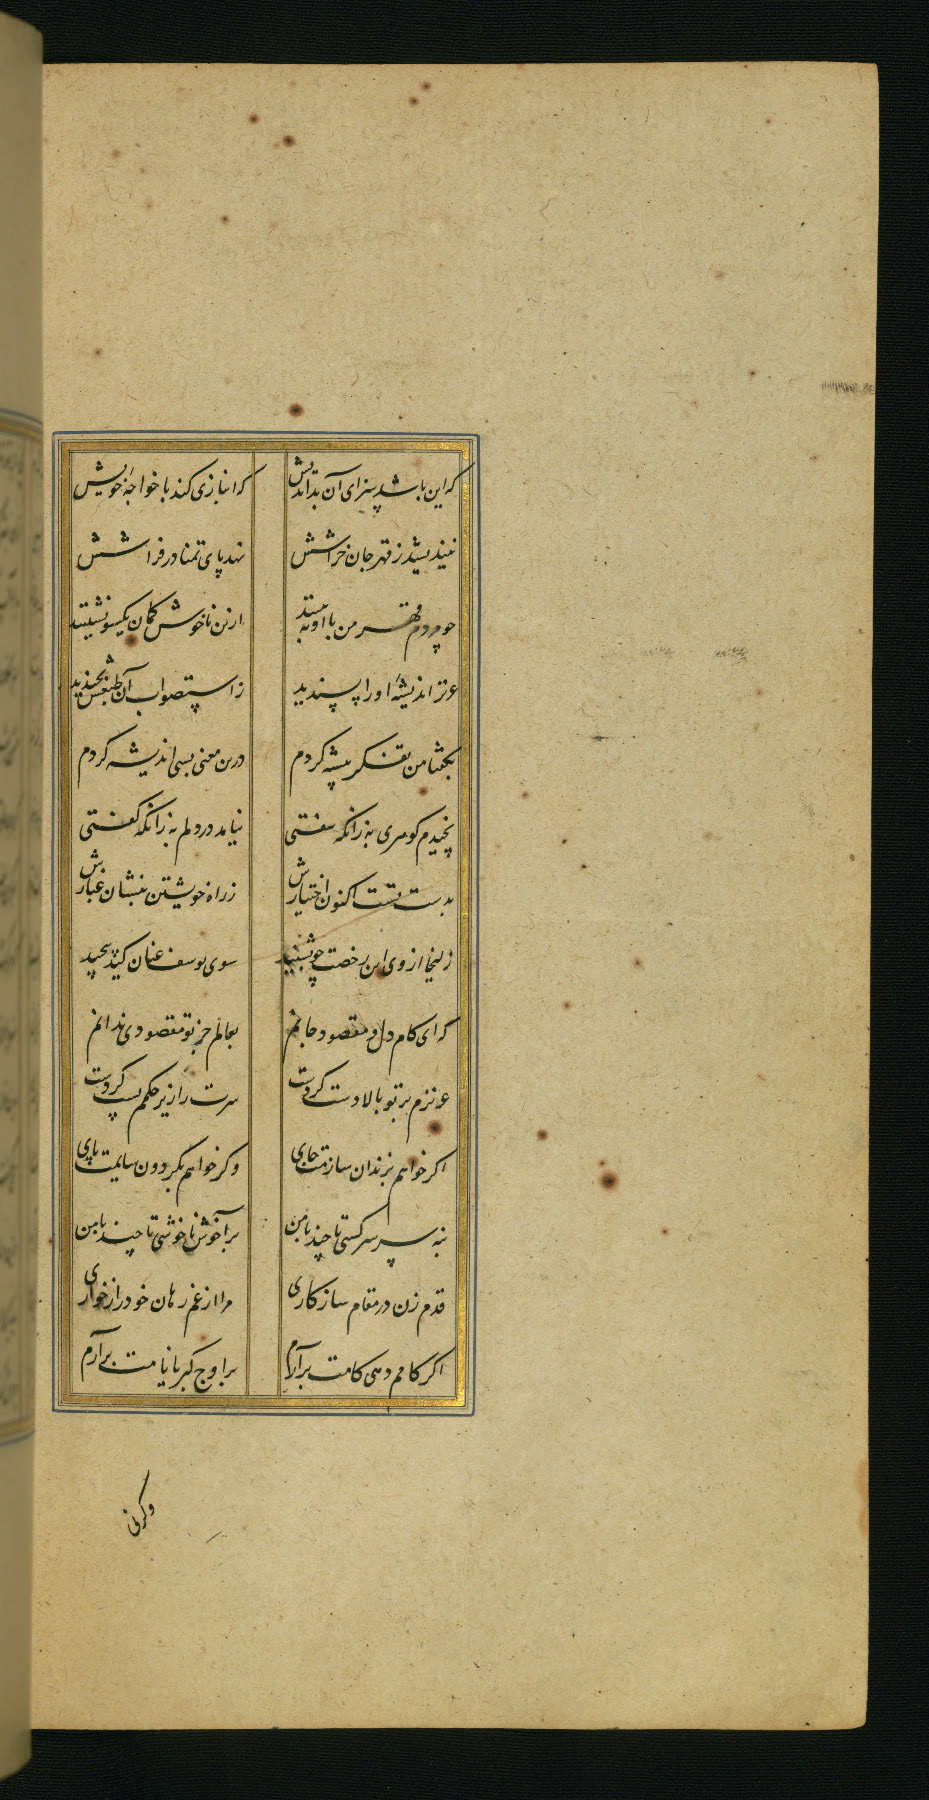 که این باشد سزای آن بداندیش که انبازی کند با خواجهٔ خویش
نیندیشد ز قهر جان خراشش نهد پای تمنا در فراشش
چو مردم قهر من با او ببینند ازین ناخوش گمان یکسو نشینند
عزیز اندیشهٔ او را پسندید ز استصواب آن طبعش بخندید
بگفتا من تفکر پیشه کردم درین معنی بسی اندیشه کردم
نچیدم گوهری به زانکه سفتی نیامد در دلم به زانکه گفتی
بدست تست اکنون اختیارش ز راه خویشتن بنشان غبارش
زلیخا از وی این رخصت چو بشنید سوی یوسف عنان کید پیچید
که ای کام دل و مقصود جانم بعالم جز تو مقصودی ندانم
عزیزم بر تو بالا دست کردست سرت را زیر حکمم پست کردست
اگر خواهم بزندان سازمت جای وگر خواهم بگردون سایمت پای
بنه سر سرکشی تا چند با من برآ خوش ناخوشی تا چند با من
قدم زن در مقام سازگاری مرا از غم رهان خود را ز خواری
اگر کامم دهی کامت برآرم بر اوج کبریا نامت برآرم
وگر نی